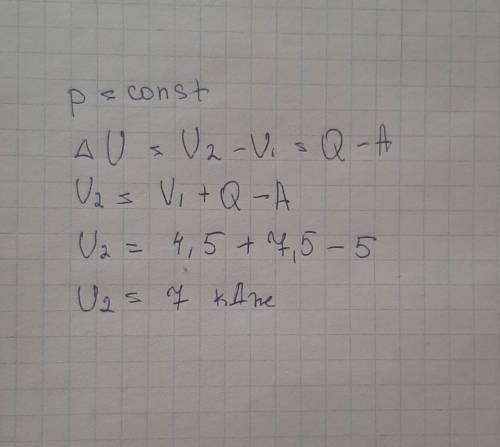 p = const
Δ U = U₂ - U₁ = Q - A
U₂ = U₁ + Q - A
U₂ = 4,5 + 7,5 - 5
U₂ = 7 кДж